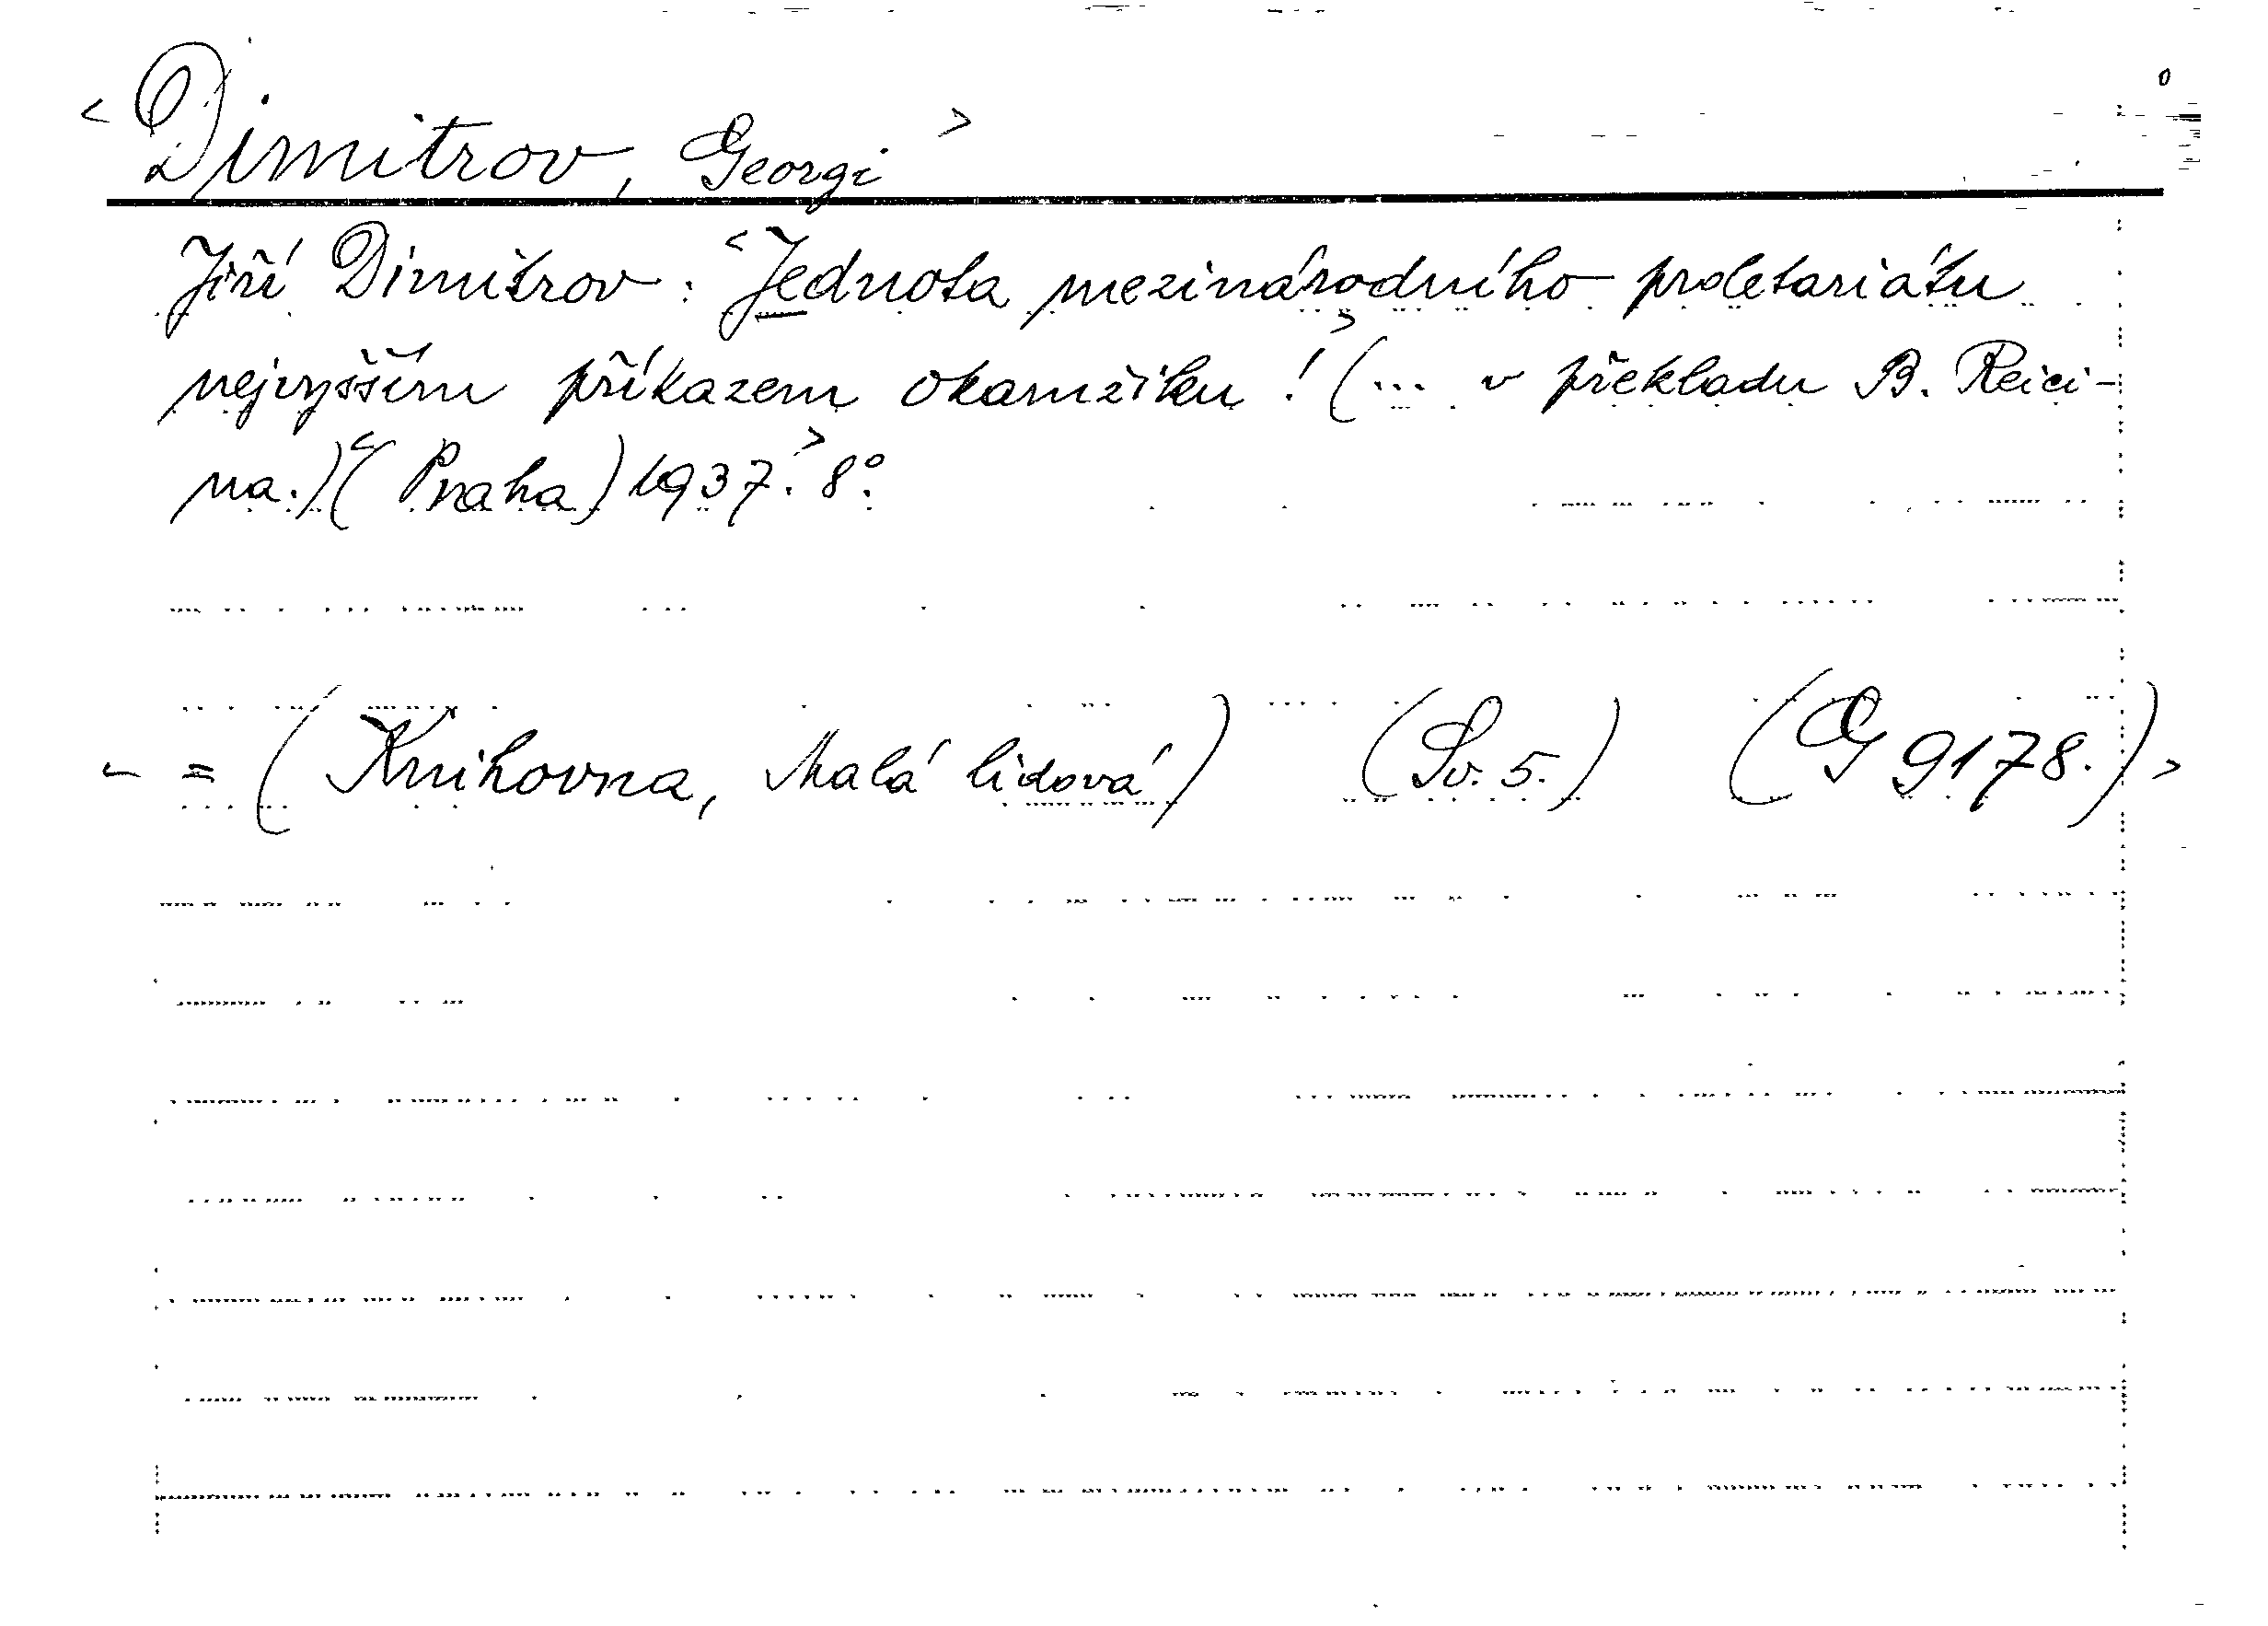 <Dimitrov, Georgi>
Jiří Dimitrov: <Jednota mezinárodního proletariátu
nejvyšším příkazem okamžiku!> (... v překladu B. Reici-
na.) <(Praha) 1937.> 8°.
< = (Knihovna, Malá lidová) (Sv. 5.) (G 9178.) >